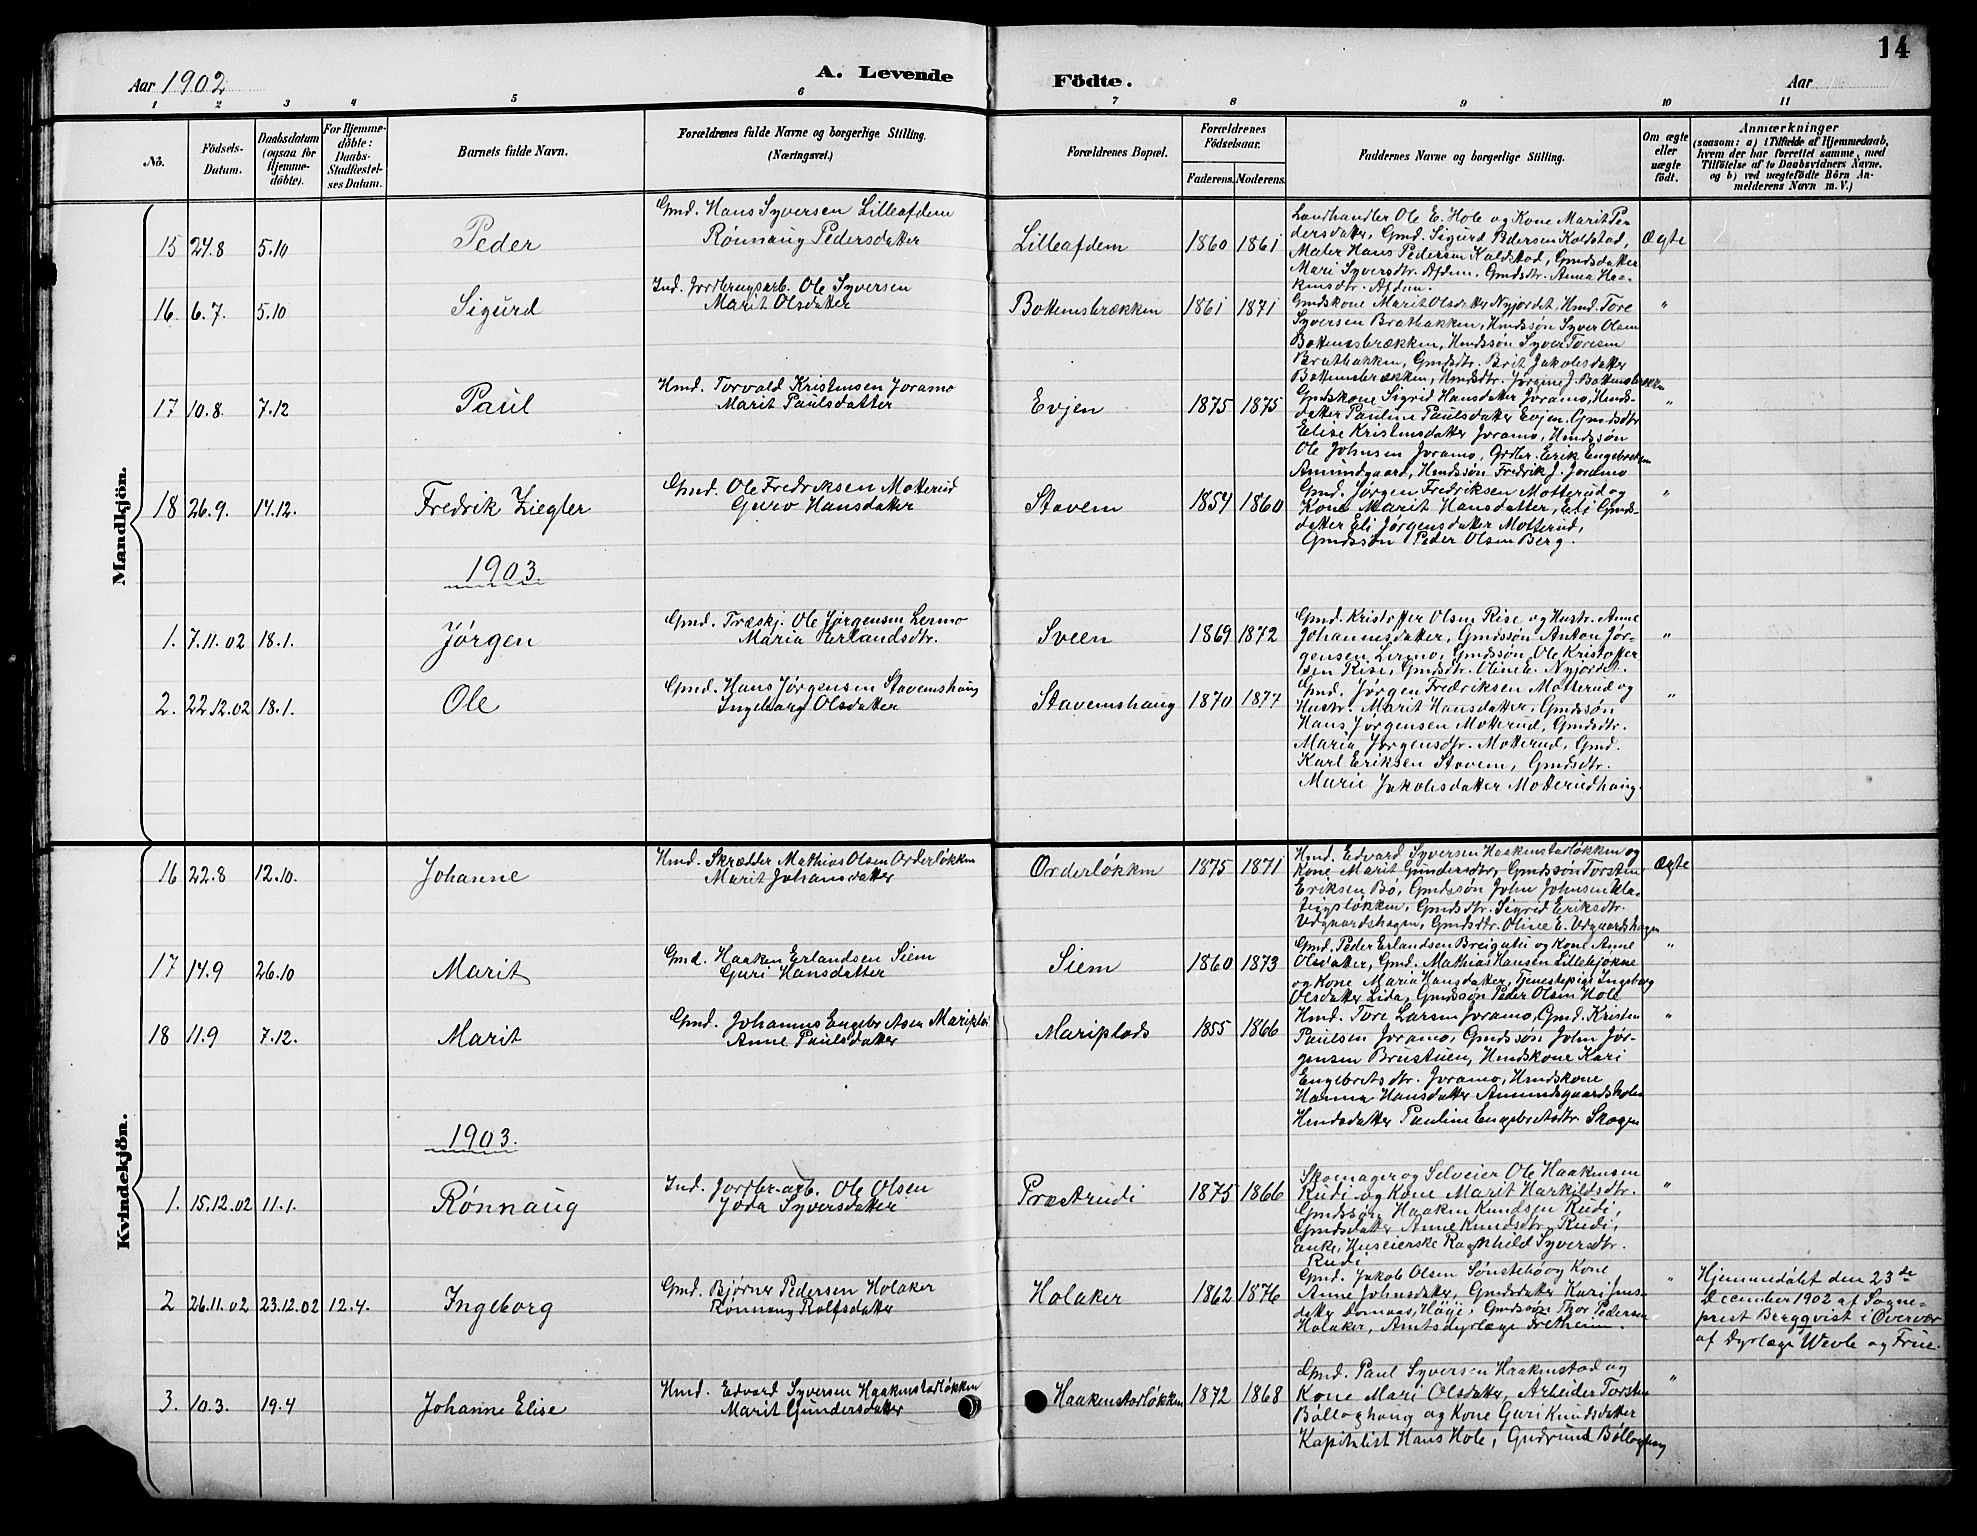 14
Aar 1902
A. Levende Födte.
Aar
1 2 3 4 5 6 7 8 9 10 11
No.
Födsels-Datum.
Daabsdatum (ogsaa for Hjemmedöbte).
For Hjemmedöbte: Daabs-Stadfestelses Datum.
Barnets fulde Navn.
Forældrenes fulde Navne og borgerlige Stilling. (Næringsvei.)
Forældrenes Bopæl.
Forældrenes Födselsaar.
Faderens. Moderens.
Faddernes Navne og borgerlige Stilling.
Om ægte eller uægte födt.
Anmærkninger
(saasom: a) i Tilfælde af Hjemmedaab,
hvem der har forrettet samme, med
Tilföielse af to Daabsvidners Navne,
og b) ved uægtefödte Börn An-
melderens Navn m. V.)
Mandkjön.
15 24.8 5.10 Peder
Gmd. Hans Syversen Lilleafdem
Rønnaug Pedersdatter
Lilleafdem 1860 1861
Landhandler Ole E. Hole og Kone Marit Pe-
dersdatter, Gmd. Sigurd Pedersen Koldstad,
Maler Hans Pedersen Koldstad, Gmdsdatter
Mari Syversdtr. Afdem, Gmdsdtr. Anna Haa-
kensdtr. Afdem.
Ægte
16. 6.7. 5.10 Sigurd
Ind. Jordbrugsarb. Ole Syversen
Marit Olsdatter
Bottemsbrækken 1861 1871
Gmdskone Marit Olsdatter Nyjordet, Hmd. Tore
Syversen Bratbakken, Hmdssøn Syver Olsen
Bottemsbrækken, Hmdssøn Syver Toresen
Bratbakken, Gmdsdtr. Brit Jakobsdatter
Bottemsbrækken, Hmdsdtr. Jørgine J. Bottemsbrækken
"
17 10.8. 7.12 Paul
Hmd. Torvald Kristensen Joramo
Marit Paulsdatter
Evjen 1875 1875
Gmdskone Sigrid Hansdatter Joramo, Hmds-
datter Pauline Paulsdatter Evjen, Gmdsdtr
Elise Kristensdatter Joramo, Hmdssøn
Ole Johnsen Joramo, Grdbr. Erik Engebretsen
Amundgaard, Hmdssøn Fredrik J. Joramo
"
18 26.9. 14.12. Fredrik Ziegler
Gmd. Ole Fredriksen Motterud
Guro Hansdatter
Stavem 1854 1860
Gmd. Jørgen Fredriksen Motterud og
Kone Marit Hansdatter, Eli Gmds-
datter Eli Jørgensdatter Motterud,
Gmdssøn Peder Olsen Berg.
"
1903.
1. 7.11.02 18.1. Jørgen
Gmd. Træskj. Ole Jørgensen Lermo
Maria Erlandsdtr.
Sveen 1869 1872
Gmd. Kristoffer Olsen Rise og Hustr. Anne
Johannesdatter, Gmdssøn Anton Jør-
gensen Lermo, Gmdssøn Ole Kristoffer
sen Rise, Gmdsdtr. Oline E. Nyjordet.
"
2. 22.12.02 18.1. Ole
Gmd. Hans Jørgensen Stavemshaug
Ingeborg Olsdatter
Stavemshaug 1870 1877
Gmd. Jørgen Fredriksen Motterud og
Hustr. Marit Hansdatter, Gmdssøn
Hans Jørgensen Motterud, Gmdsdtr.
Maria Jørgensdtr. Motterud, Gmd.
Karl Eriksen Stavem, Gmdsdtr.
Marie Jakobsdatter Motterudhaug.
"
Kvindekjön.
16 22.8 12.10. Johanne
Hmd. Skrædder Mathias Olsen Orderløkken
Marit Johansdatter
Orderløkken 1875 1871
Hmd. Edvard Syversen Haakenstadløkken og
Kone Marit Gundersdtr, Gmdssøn Torsten
Eriksen Bø, Gmdssøn John Johnsen Kla-
Gmdsdtr. Sigrid Eriksdtr.
Udgaardshagen, Gmdsdtr. Oline E. Udgaardshagen
Ægte
17 14.9 26.10 Marit
Gmd. Haaken Erlandsen Siem
Guri Hansdatter
Siem 1860 1873
Gmd. Peder Erlandsen og Kone Anne
Olsdatter, Gmd. Mathias Hansen
og Kone Maria Hansdatter, Tjenestepige Ingeborg
Olsdatter Lida, Gmdssøn Peder Olsen Hole
"
18 11.9 7.12. Marit
Gmd. Johannes Engebretsen Mariplds
Anne Paulsdatter
Mariplads 1855 1866
Hmd. Tore Larsen Joramo, Gmd. Kristen
Paulsen Joramo, Gmdssøn John Jør-
gensen Brustuen, Hmdskone Kari
Engebretsdtr. Joramo, Hmdskone
Hanna Hansdatter Amundsgaardsholen
Hmdsdatter Pauline Engebretsdtr. Skogen
"
1903.
1. 15.12.02 11.1. Rønnaug
Ind. Jordbr-arb. Ole Olsen
Joda Syversdatter
Præstrudi 1875 1866
Skomager og Selveier Ole Haakensen
Rudi og Kone Marit Harkildsdtr.
Gmdssøn Haaken Knudsen Rudi,
Gmdsdatter Anne Knudsdtr Rudi,
Enke, Huseierske Ragnhild Syversdtr.
Rudi
"
2 26.11.02 23.12.02 12.4. Ingeborg
Gmd. Bjørner Pedersen Holaker
Rønnaug Rolfsdatter
Holaker 1862 1876
Gmd. Jakob Olsen Sønstebø og Kone
Anne Johnsdatter, Gmdsdatter Kari Jens-
datter Domaas, Høge, Gmdssøn Thor Pedersen
Holaker, Amtsdyrlæge Fretheim.
"
Hjemmedøbt den 23de
December 1902 af Sogne-
prest Bergqvist i Overvær
af Dyrlæge Wevle og Frue.
3. 10.3. 19.4 Johanne Elise
Hmd. Edvard Syversen Haakenstadløkken
Marit Gundersdatter
Haakenstadløkken 1872 1868
Gmd. Paul Syversen Haakenstad og
Kone Mari Olsdatter, Arbeider Torsten
Bølloghaug og Kone Guri Knudsdatter
Kapitalist Hans Hole, Gudrund Bølloghaug
"